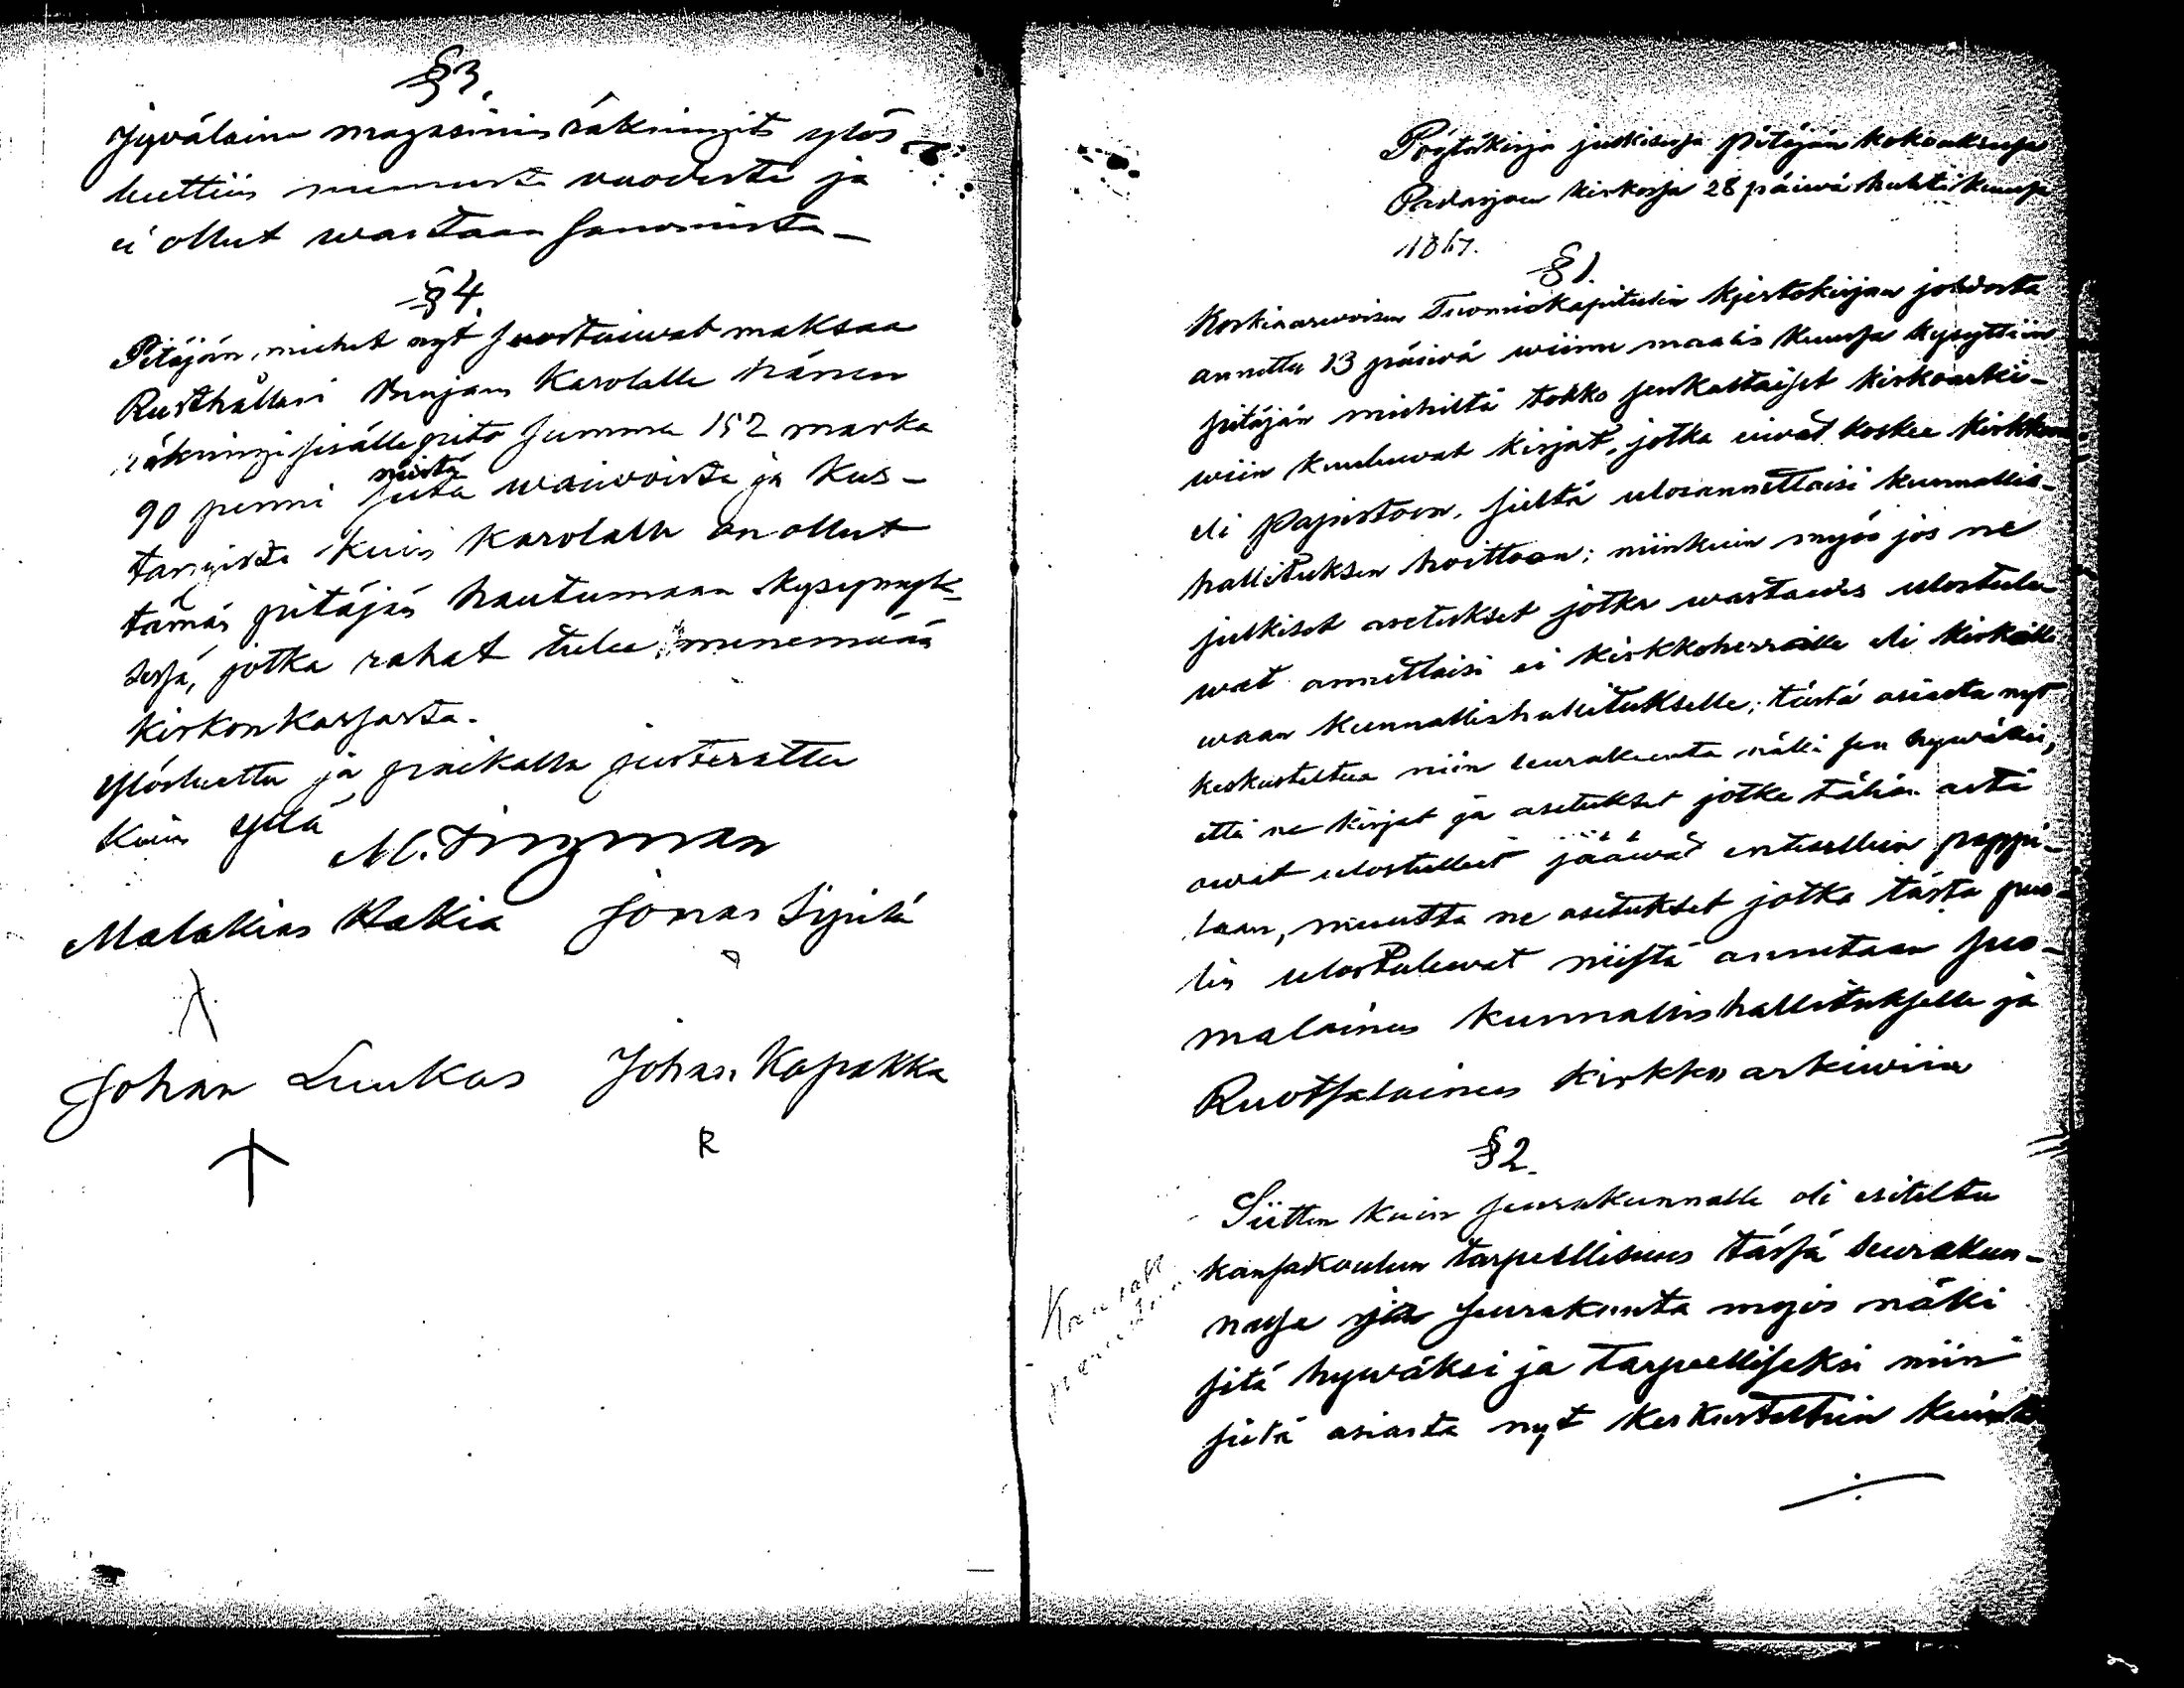 §3.
Jyvälaine magasinin räkningit ylös
luettiin mennestä vuodesta ja
ei ollut wastaan sanomista_
§4.
Pitäjän miehet nyt suostuiwat maksaa
Rusthållari Benjam Karolalle hänen
räkningi sisälle pito summa 152 marka
90 penni niistä
siitä waiwoista ja kus-
tangista kuin Karolalla on ollut
tämän pitäjän hautumaan kysymyk-
sesä, jotka rahat tulee menemään
kirkon kassasta.
Ylösluettu ja paikalla justerattu
kuin yllä
M. Tingman
Malakias Kakia Jonas Sipilä
Johan Luukas Johan Kapakka
R
Pöytäkirja julkisesa pitäjän kokouksesa
Padasjoen kirkosa 28 päiwä huhti kuusa
1867.
§1.
Korkiaarwoisen Tuomiokapitulin kjertokirjan johdosta
annettu 13 päiwä wiime maalis kuusa kysyttiin
pitäjän miehiltä tokko senkaltaiset kirkoarki-
wiin kuuluwat kirjat, jotka eiwät koske kirkkoa
eli Papistoon, sieltä ulosannettaisi kunnallis-
hallituksen hoittoon; niinkuin myös jos ne
julkiset asetukset jotka wastaudes ulostule
wat annettaisi ei kirkkoherroille eli kirkoille
waan kunnallishallitukselle; tästä asiasta nyt
keskusteltua niin seurakunta näki sen hywäksi,
että ne kirjat ja asetukset jotka tähän asti
owat ulostulleet jääwät entisellein pappi-
laan, muutta ne asetukset jotka tästä puo-
lin ulostulewat niistä annetaan suo-
malainen kunnallishallitukselle ja
Ruotsalainen kirkko arkiwiin
§2.
Siitten kuin seurakunnalle oli esiteltu
kansakoulun tarpeellisuus täsä seurakun-
nasa ja seurakunta myös näki
sitä hywäksi ja tarpeelliseksi niin
siitä asiasta nyt keskusteltiin kuinka